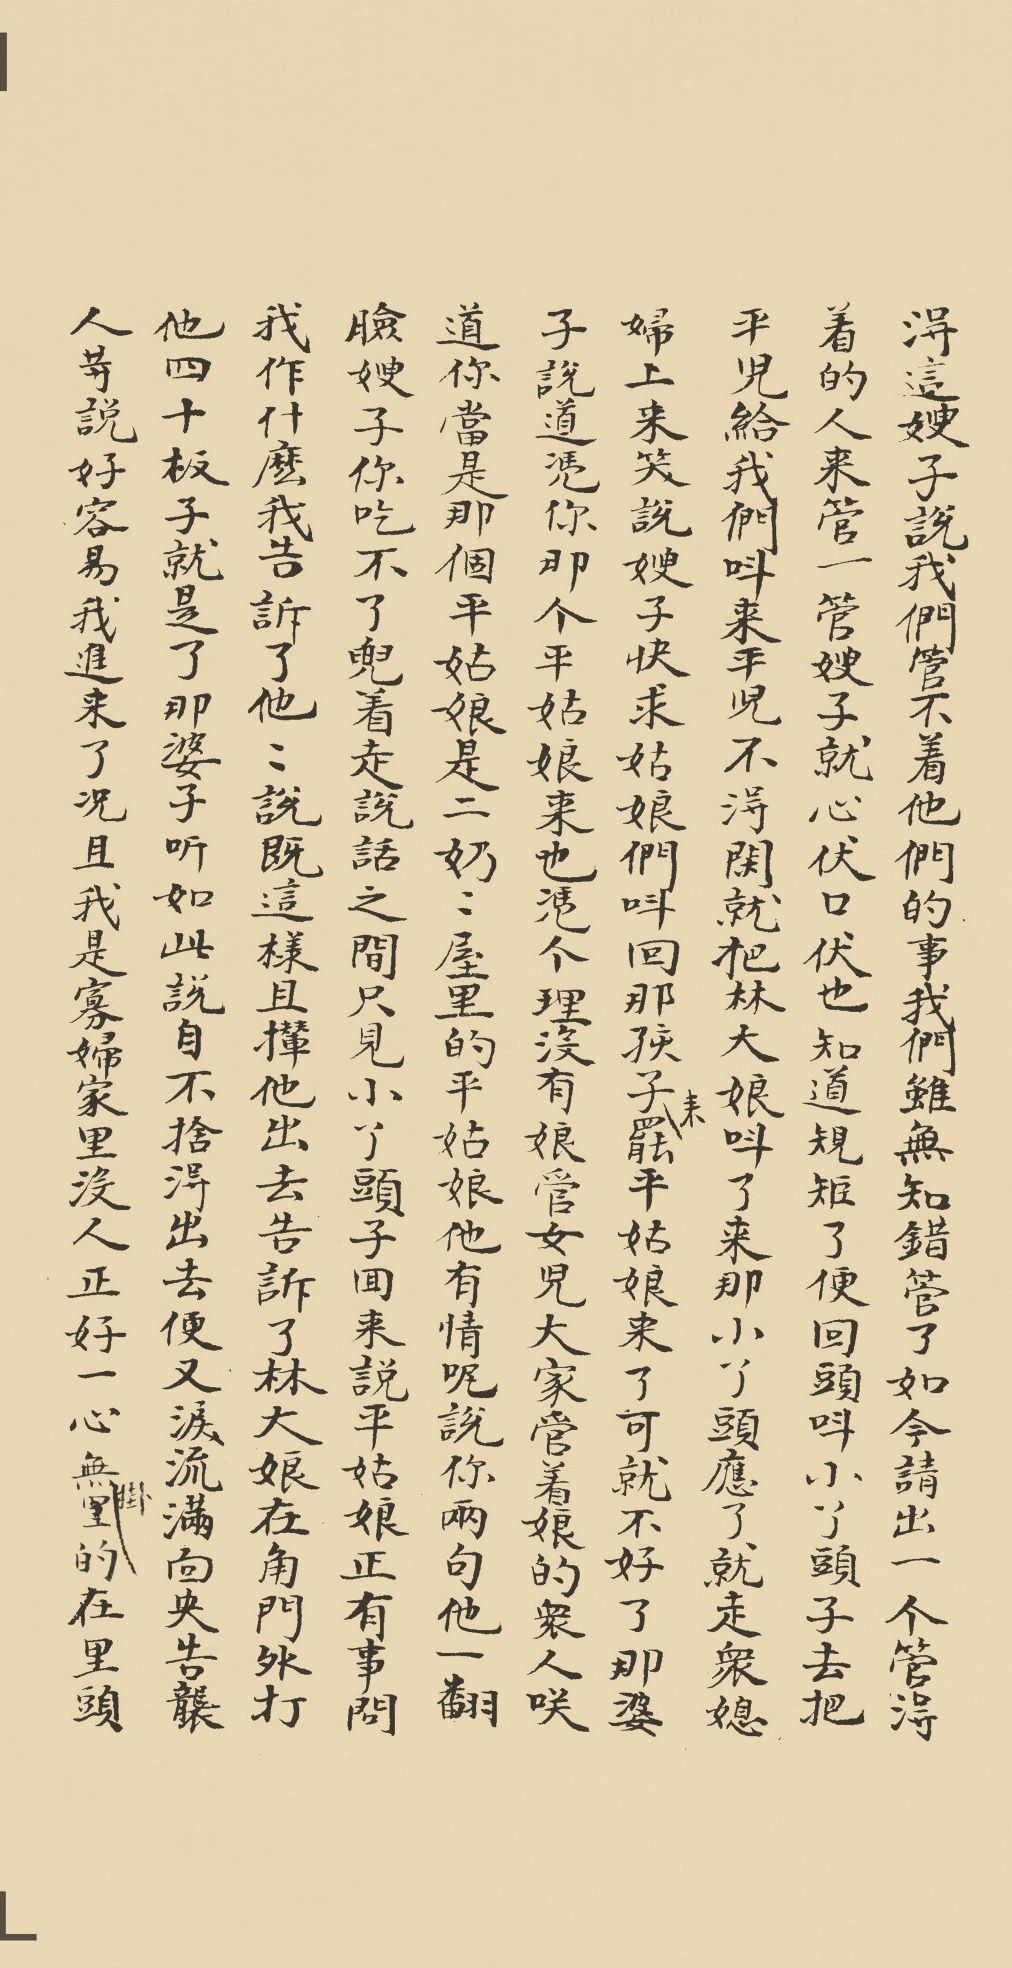 得這嫂子說我們管不着他們的事我們雖無知錯管了如今請出一个管得
着的人来管一管嫂子就心伏口伏也知道規矩了便回頭呌小丫頭子去把
平児給我們呌来平児不得閑就把林大娘呌了来那小丫頭應了就走衆媳
婦上来笑說嫂子快求姑娘們呌回那孩子来罷平姑娘来了可就不好了那婆
子說道凴你那个平姑娘来也凴个理沒有娘管女児大家管着娘的衆人咲
道你當是那個平姑娘是二奶〻屋里的平姑娘他有情呢說你兩句他一翻
臉嫂子你吃不了兜着走說話之間只見小丫頭子囬来說平姑娘正有事問
我作什麽我告訴了他〻說既這樣且攆他出去告訴了林大娘在角門外打
他四十板子就是了那婆子听如此說自不捨得出去便又淚流滿面央告襲
人等說好容易我進来了况且我是寡婦家里沒人正好一心無掛的在里頭